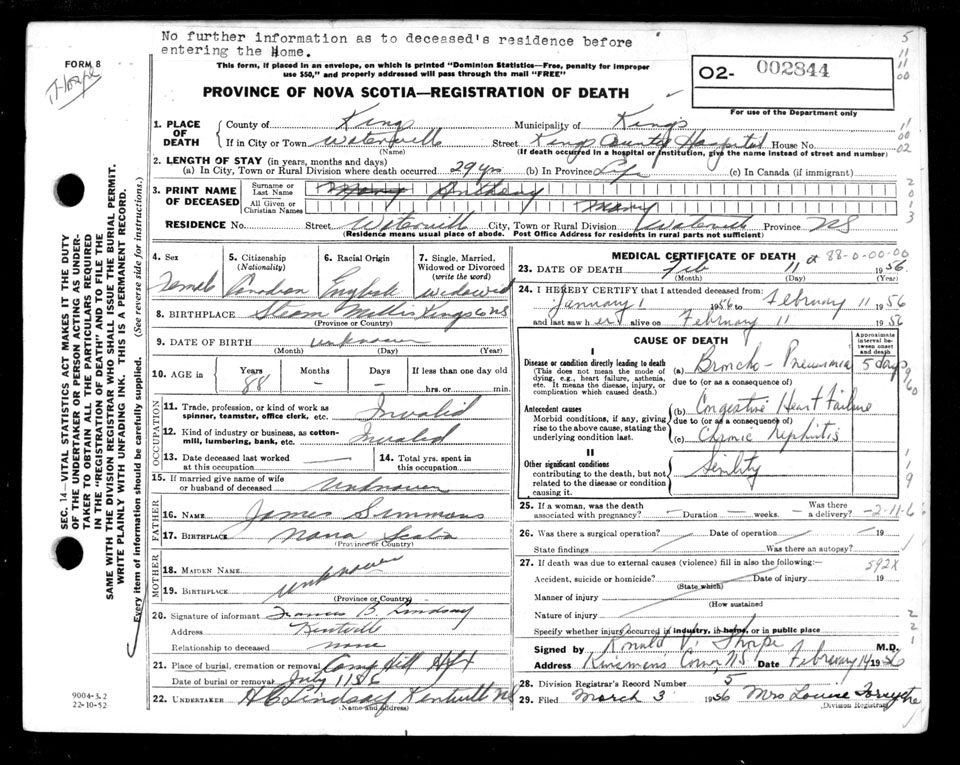 No further information as to deceased's residence before
entering the Home.
FORM 8
This form, if placed in an envelope, on which is printed "Dominion Statistics—Free, penalty for improper
use $50," and properly addressed will pass through the mail "FREE"
O2- 002844
For use of the Department only
PROVINCE OF NOVA SCOTIA—REGISTRATION OF DEATH
1. PLACE OF DEATH
County of Kings Municipality of Kings
If in City or Town Waterville Street Kings County Hospital House No.
(Name) (If death occurred in a hospital or institution, give the name instead of street and number)
2. LENGTH OF STAY (in years, months and days)
(a) In City, Town or Rural Division where death occurred 29 yrs (b) In Province Life (c) In Canada (if immigrant)
3. PRINT NAME OF DECEASED
Surname or Last Name Anthony
All Given or Christian Names Mary
RESIDENCE No. Street Waterville City, Town or Rural Division Waterville Province NS
(Residence means usual place of abode. Post Office Address for residents in rural parts not sufficient)
4. Sex Female
5. Citizenship (Nationality) Canadian
6. Racial Origin English
7. Single, Married, Widowed or Divorced (write the word) Widowed
8. BIRTHPLACE Steam Mills Kings Co NS
(Province or Country)
9. DATE OF BIRTH unknown
(Month) (Day) (Year)
10. AGE in Years 88 Months – Days – If less than one day old
hrs. or min.
OCCUPATION
11. Trade, profession, or kind of work as spinner, teamster, office clerk, etc. Invalid
12. Kind of industry or business, as cotton-mill, lumbering, bank, etc. Invalid
13. Date deceased last worked at this occupation
14. Total yrs. spent in this occupation
15. If married give name of wife or husband of deceased Unknown
FATHER
16. NAME James Simmons
17. BIRTHPLACE Nova Scotia
(Province or Country)
MOTHER
18. MAIDEN NAME
19. BIRTHPLACE unknown
(Province or Country)
20. Signature of informant Francis B. Lindsay
Address Kentville
Relationship to deceased none
21. Place of burial, cremation or removal Camp Hill Hfx
Date of burial or removal
22. UNDERTAKER H C Lindsay Kentville NS
(Name and address)
MEDICAL CERTIFICATE OF DEATH
88-0-00-00
23. DATE OF DEATH Feb 11 1956
(Month) (Day) (Year)
24. I HEREBY CERTIFY that I attended deceased from:
January 1 1956 to February 11 1956
and last saw her alive on February 11 1956
CAUSE OF DEATH
Approximate interval between onset and death
I
Disease or condition directly leading to death
(This does not mean the mode of dying, e.g., heart failure, asthenia, etc. It means the disease, injury, or complication which caused death.)
(a) Broncho-Pneumonia 5 days
due to (or as a consequence of)
Antecedent causes
Morbid conditions, if any, giving rise to the above cause, stating the underlying condition last.
(b) Congestive Heart Failure
due to (or as a consequence of)
(c) Chronic Nephritis
II
Other significant conditions
contributing to the death, but not related to the disease or condition causing it.
Senility
25. If a woman, was the death associated with pregnancy? – Duration – weeks. Was there a delivery? –
26. Was there a surgical operation? Date of operation 19
State findings Was there an autopsy?
27. If death was due to external causes (violence) fill in also the following:
592X
Accident, suicide or homicide? Date of injury 19
(State which)
Manner of injury
(How sustained
Nature of injury
Specify whether injury occurred in industry, in home, or in public place
Signed by Ronald V. Thorpe M.D.
Address Kinsmans Corner, N.S. Date February 14 1956
28. Division Registrar's Record Number 5
29. Filed March 3 1956 Mrs Louise Forsythe
(Division Registrar)
SEC. 14—VITAL STATISTICS ACT MAKES IT THE DUTY
OF THE UNDERTAKER OR PERSON ACTING AS UNDER-
TAKER TO OBTAIN ALL THE PARTICULARS REQUIRED
IN THE "REGISTRATION OF DEATH" AND TO FILE THE
SAME WITH THE DIVISION REGISTRAR WHO SHALL ISSUE THE BURIAL PERMIT.
WRITE PLAINLY WITH UNFADING INK. THIS IS A PERMANENT RECORD.
Every item of information should be carefully supplied. (See reverse side for instructions.)
9004-3.2
22-10-52